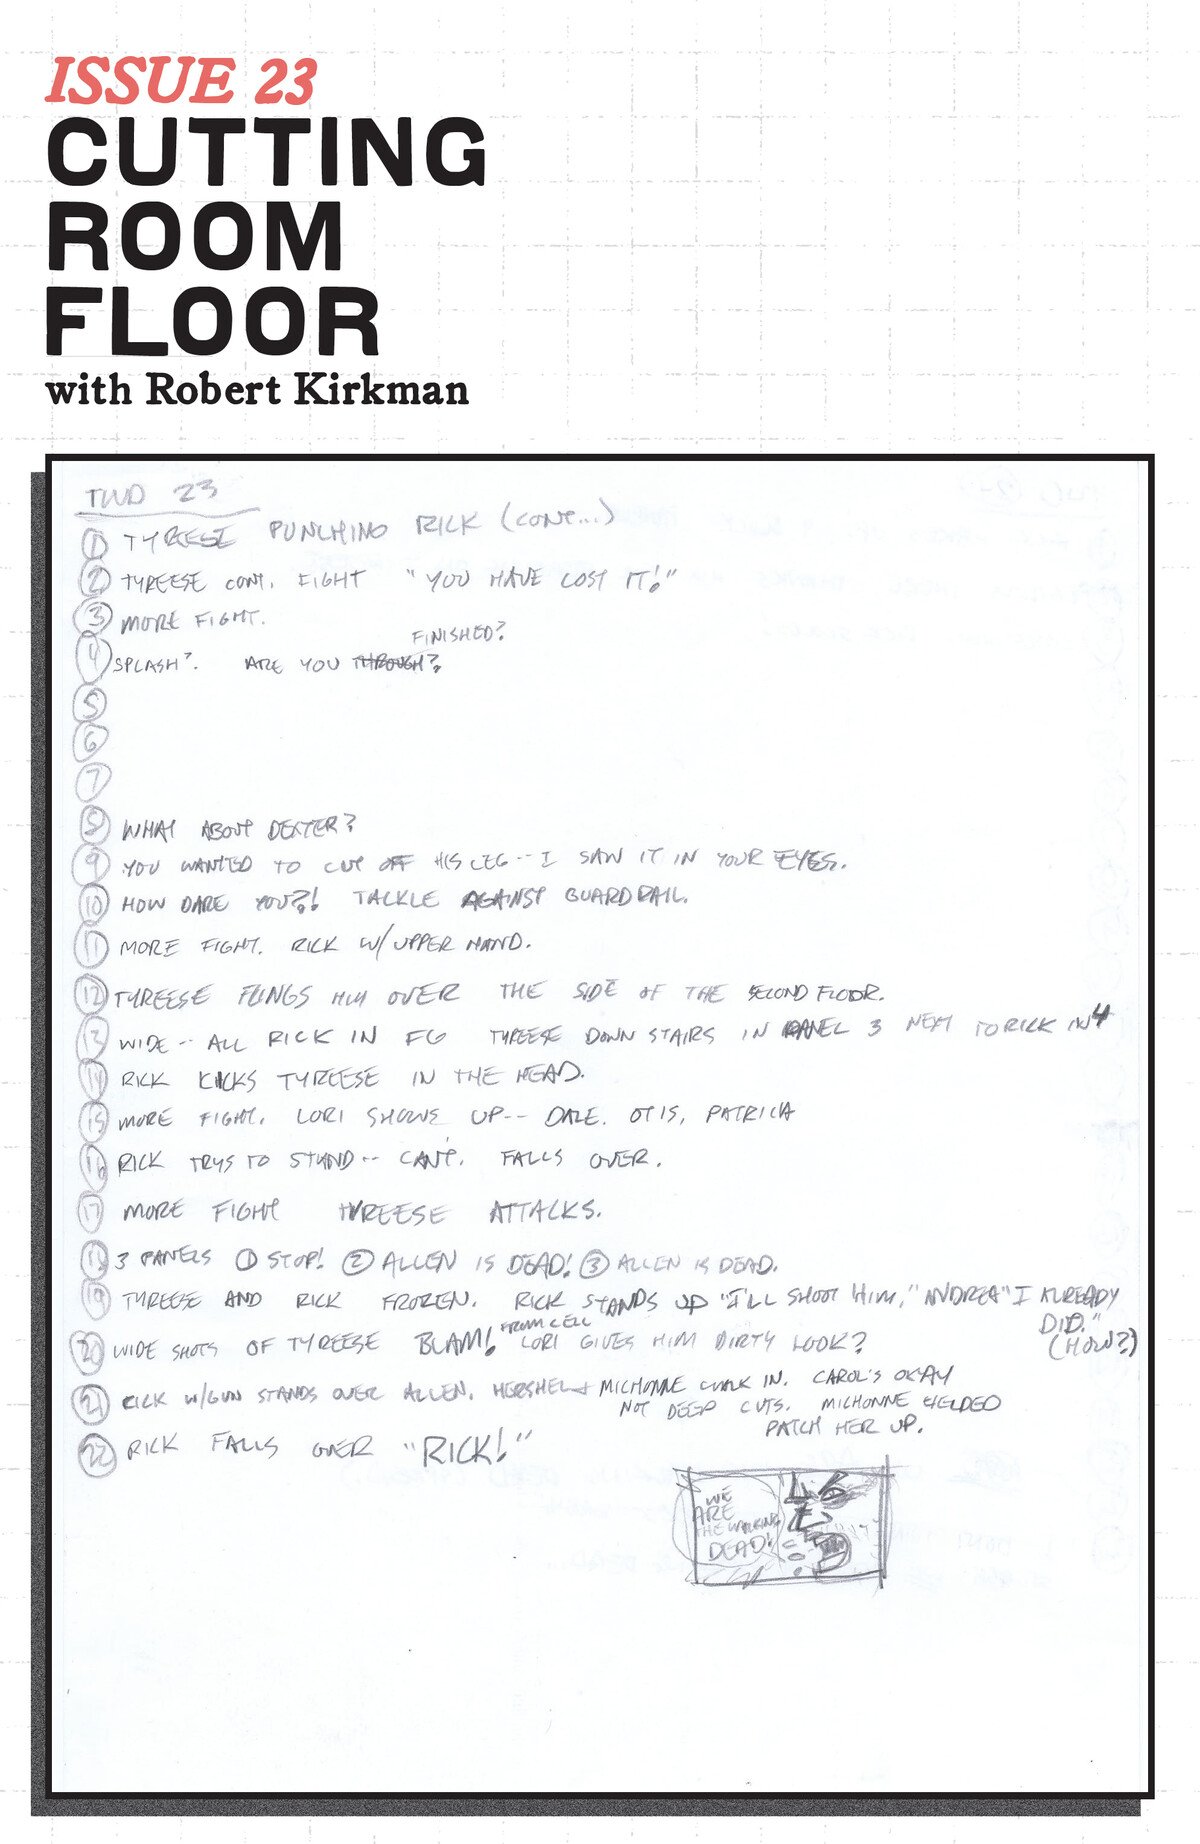 ISSUE 23
CUTTING
ROOM
FLOOR
with Robert Kirkman
TWD 23
1 TYREESE PUNCHING RICK (CONT...)
2 TYREESE CONT. FIGHT "YOU HAVE LOST IT!"
3 MORE FIGHT.
FINISHED?
4 SPLASH? ARE YOU THROUGH?
5
6
7
8 WHAT ABOUT DEXTER?
9 YOU WANTED TO CUT OFF HIS LEG-- I SAW IT IN YOUR EYES.
10 HOW DARE YOU?! TACKLE AGAINST GUARDRAIL.
11 MORE FIGHT. RICK W/UPPER HAND.
12 TYREESE FLINGS HIM OVER THE SIDE OF THE SECOND FLOOR.
13 WIDE-- ALL RICK IN FG TYREESE DOWN STAIRS IN PANEL 3 NEXT TO RICK IN 4
14 RICK KICKS TYREESE IN THE HEAD.
15 MORE FIGHT. LORI SHOWS UP-- DALE. OTIS, PATRICIA
16 RICK TRYS TO STAND-- CAN'T. FALLS OVER.
17 MORE FIGHT TYREESE ATTACKS.
18 3 PANELS 1 STOP! 2 ALLEN IS DEAD! 3 ALLEN IS DEAD.
19 TYREESE AND RICK FROZEN. RICK STANDS UP "I'LL SHOOT HIM," ANDREA "I ALREADY
DID."
(HOW?)
20 WIDE SHOTS OF TYREESE BLAM! FROM CELL LORI GIVES HIM DIRTY LOOK?
21 RICK W/GUN STANDS OVER ALLEN. HERSHEL + MICHONNE WALK IN. CAROL'S OKAY
NOT DEEP CUTS. MICHONNE HELDED
PATCH HER UP.
22 RICK FALLS OVER "RICK!"
WE
ARE
THE WALKING
DEAD!